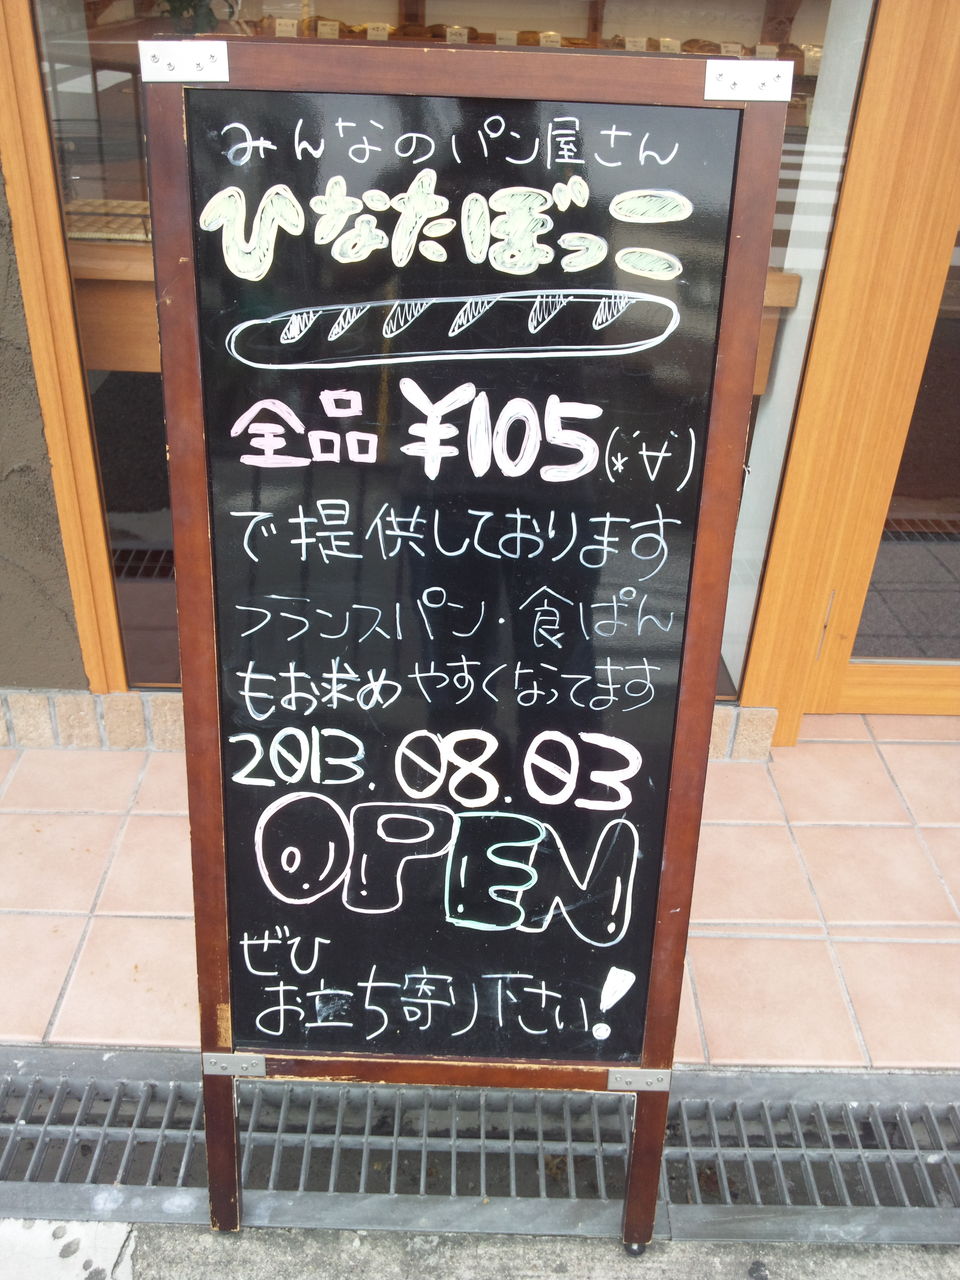 みんなのパン屋さん
ひなたぼっこ
全品 ¥105(*´∀`)
で提供しております
フランスパン・食ぱん
もお求めやすくなってます
2013.08.03
OPEN
ぜひ
お立ち寄り下さい!